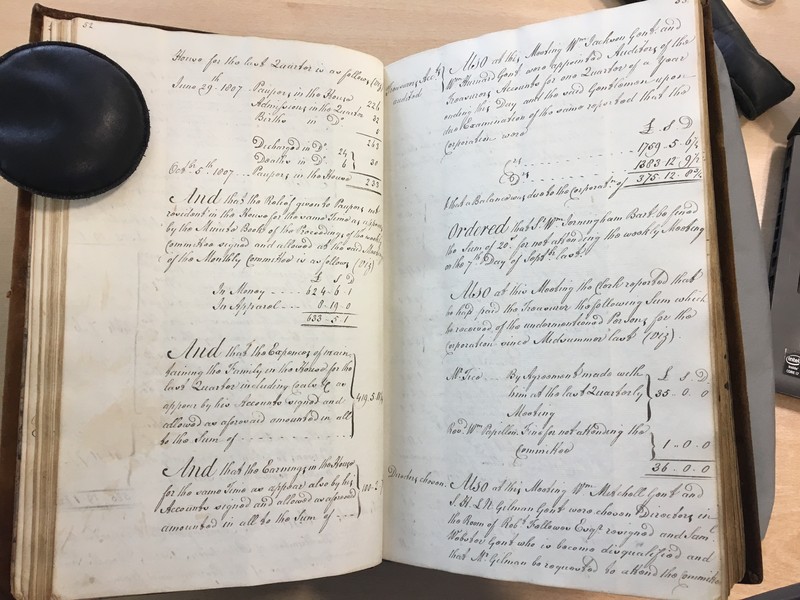 52
House for the last Quarter is as follows (Viz)
June 29th 1807 Paupers in the House 226
Admissions in the Quarter 32
Births in Do. 5
263
Discharged in Do. 24
Deaths in Do. 6 } 30
Octr. 5th 1807 Paupers in the House 233
And that the Relief given to Paupers not
resident in the House for the same Time as appears
by the Minute Book of the Proceedings of the weekly
Committee signed and allowed at the said Meeting
of the Monthly Committee is as follows (Viz)
£ S D
In Money ---- 624 - 6 - 1
In Apparel --- 8 - 19 - 0
633 - 5 - 1
And that the Expences of main-
taining the Family in the House for the
last Quarter including Coals &c as
appear by his Accounts signed and
allowed as aforesaid amounted in all
to the Sum of
And that the Earnings in the House
for the same Time as appear also by his
Accounts signed and allowed as aforesaid
amounted in all to the Sum of
53
Treasurers Acct.
audited
Also at this Meeting Wm. Jackson Gent. and
Wm. Gent. were appointed Auditors of the
Treasurers Accounts for one Quarter of a Year
ending this Day and the said Gentlemen upon
due Examination of the same reported that the
Corporation were
£ S D
1759 - 5 - 6½
1383 - 12 - 9½
& that a Balance was due to the Corporatn. of 375 - 12 - 8¾
Ordered that Sr. Wm. Jerningham Bart. be fined
the Sum of 20s. for not attending the weekly Meeting
on the 7th Day of Septr. last.
Also at this Meeting the Clerk reported that
he had paid the Treasurer the following Sum which
he received of the undermentioned Persons for the
Corporation since Midsummer last (Viz).
£ S D
Mr. Tice By Agreement made with
him at the last Quarterly
Meeting } 35 - 0 - 0
Revd. Wm. Papillon Fine for not attending the
Committee } 1 - 0 - 0
36 - 0 - 0
Directors chosen
Also at this Meeting Wm. Mitchell Gent. and
Gilman Gent. were chosen Directors in
the Room of Robt. Fellowes Esqr. resigned and Saml.
Webster Gent. who is become disqualified and
that Mr. Gilman be requested to attend the Committee
intel